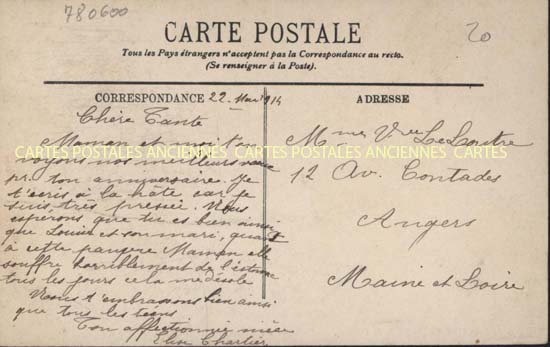 780600
20
CARTE POSTALE
Tous les Pays étrangers n'acceptent pas la Correspondance au recto.
(Se renseigner à la Poste).
CORRESPONDANCE 22 Mai 1914
ADRESSE
Chère Tante
Maman et moi t'en
voyons nos meilleurs vœux
pr. ton anniversaire. Je
t'écris à la hâte car je
suis très pressée. Nous
espérons que tu es bien ainsi
que Louise et son mari, quant
à cette pauvre Maman elle
souffre horriblement de l'estomac
tous les jours cela me désole
Nous t'embrassons bien ainsi
que tous les tiens
Ton affectionnée nièce
Elise Chartier
Mme Vve Le Loutre
12 Av. Contades
Angers
Maine et Loire
CARTES POSTALES ANCIENNES CARTES POSTALES ANCIENNES CARTES